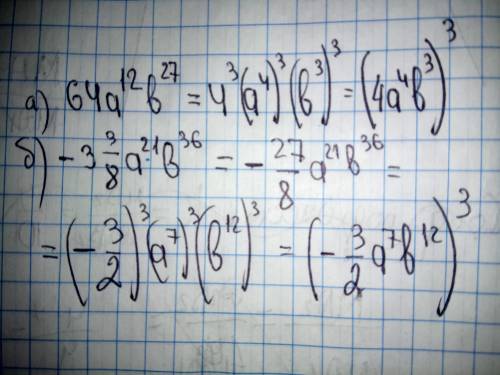 а) 64a¹²b²⁷ = 4³(a⁴)³(b³)³ = (4a⁴b³)³
б) -3 3/8 a²¹b³⁶ = - 27/8 a²¹b³⁶ =
= (- 3/2)³(a⁷)³(b¹²)³ = (- 3/2 a⁷b¹²)³